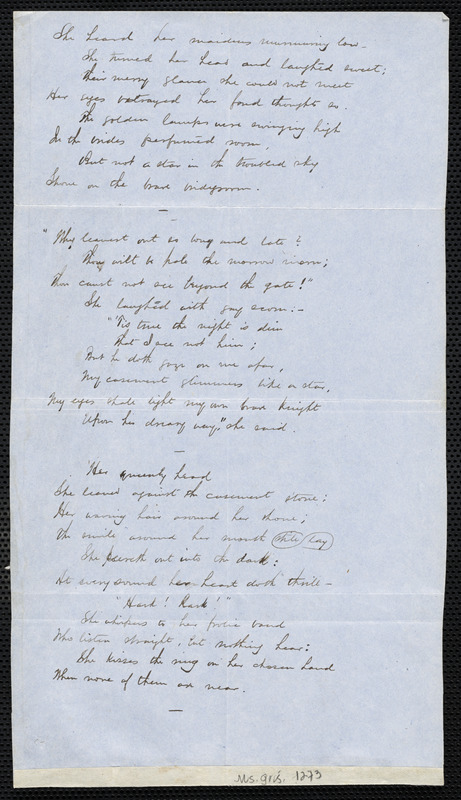 She heard her maidens murmuring low –
She turned her head and laughed sweet;
Their merry glances she could not meet
Her eyes betrayed her fond thoughts so.
The golden lamps were swinging high
In the brides perfumed room,
But not a star in the troubled sky
Shone on the brave bridegroom.
–
"Why leanest out so long and late?
Thou wilt be pale the morrow morn;
Thou canst not see beyond the gate!"
She laughed with gay scorn: –
"'Tis true the night is dim
That I see not him;
But he doth gaze on me afar,
My casement glimmers like a star,
My eyes shall light my own brave Knight
Upon his dreary way," she said.
–
Her queenly head
She leaned against the casement stone;
Her waving hair around her shone;
The smile around her mouth still lay
She peereth out into the dark:
At every sound her heart doth thrill –
"Hark! Hark!"
She whispers to her frolic band
Who listen straight, but nothing hear:
She kisses the ring on her chosen hand
When none of them are near.
–
Ms. gris. 1273